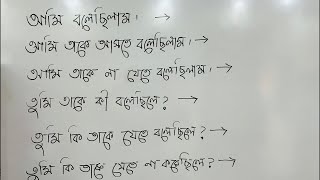 আমি বলেছিলাম। →
আমি তাকে আসতে বলেছিলাম। →
আমি তাকে না যেতে বলেছিলাম। →
তুমি তাকে কী বলেছিলে? →
তুমি কি তাকে যেতে বলেছিলে? →
তুমি কি তাকে যেতে না করেছিলে? →